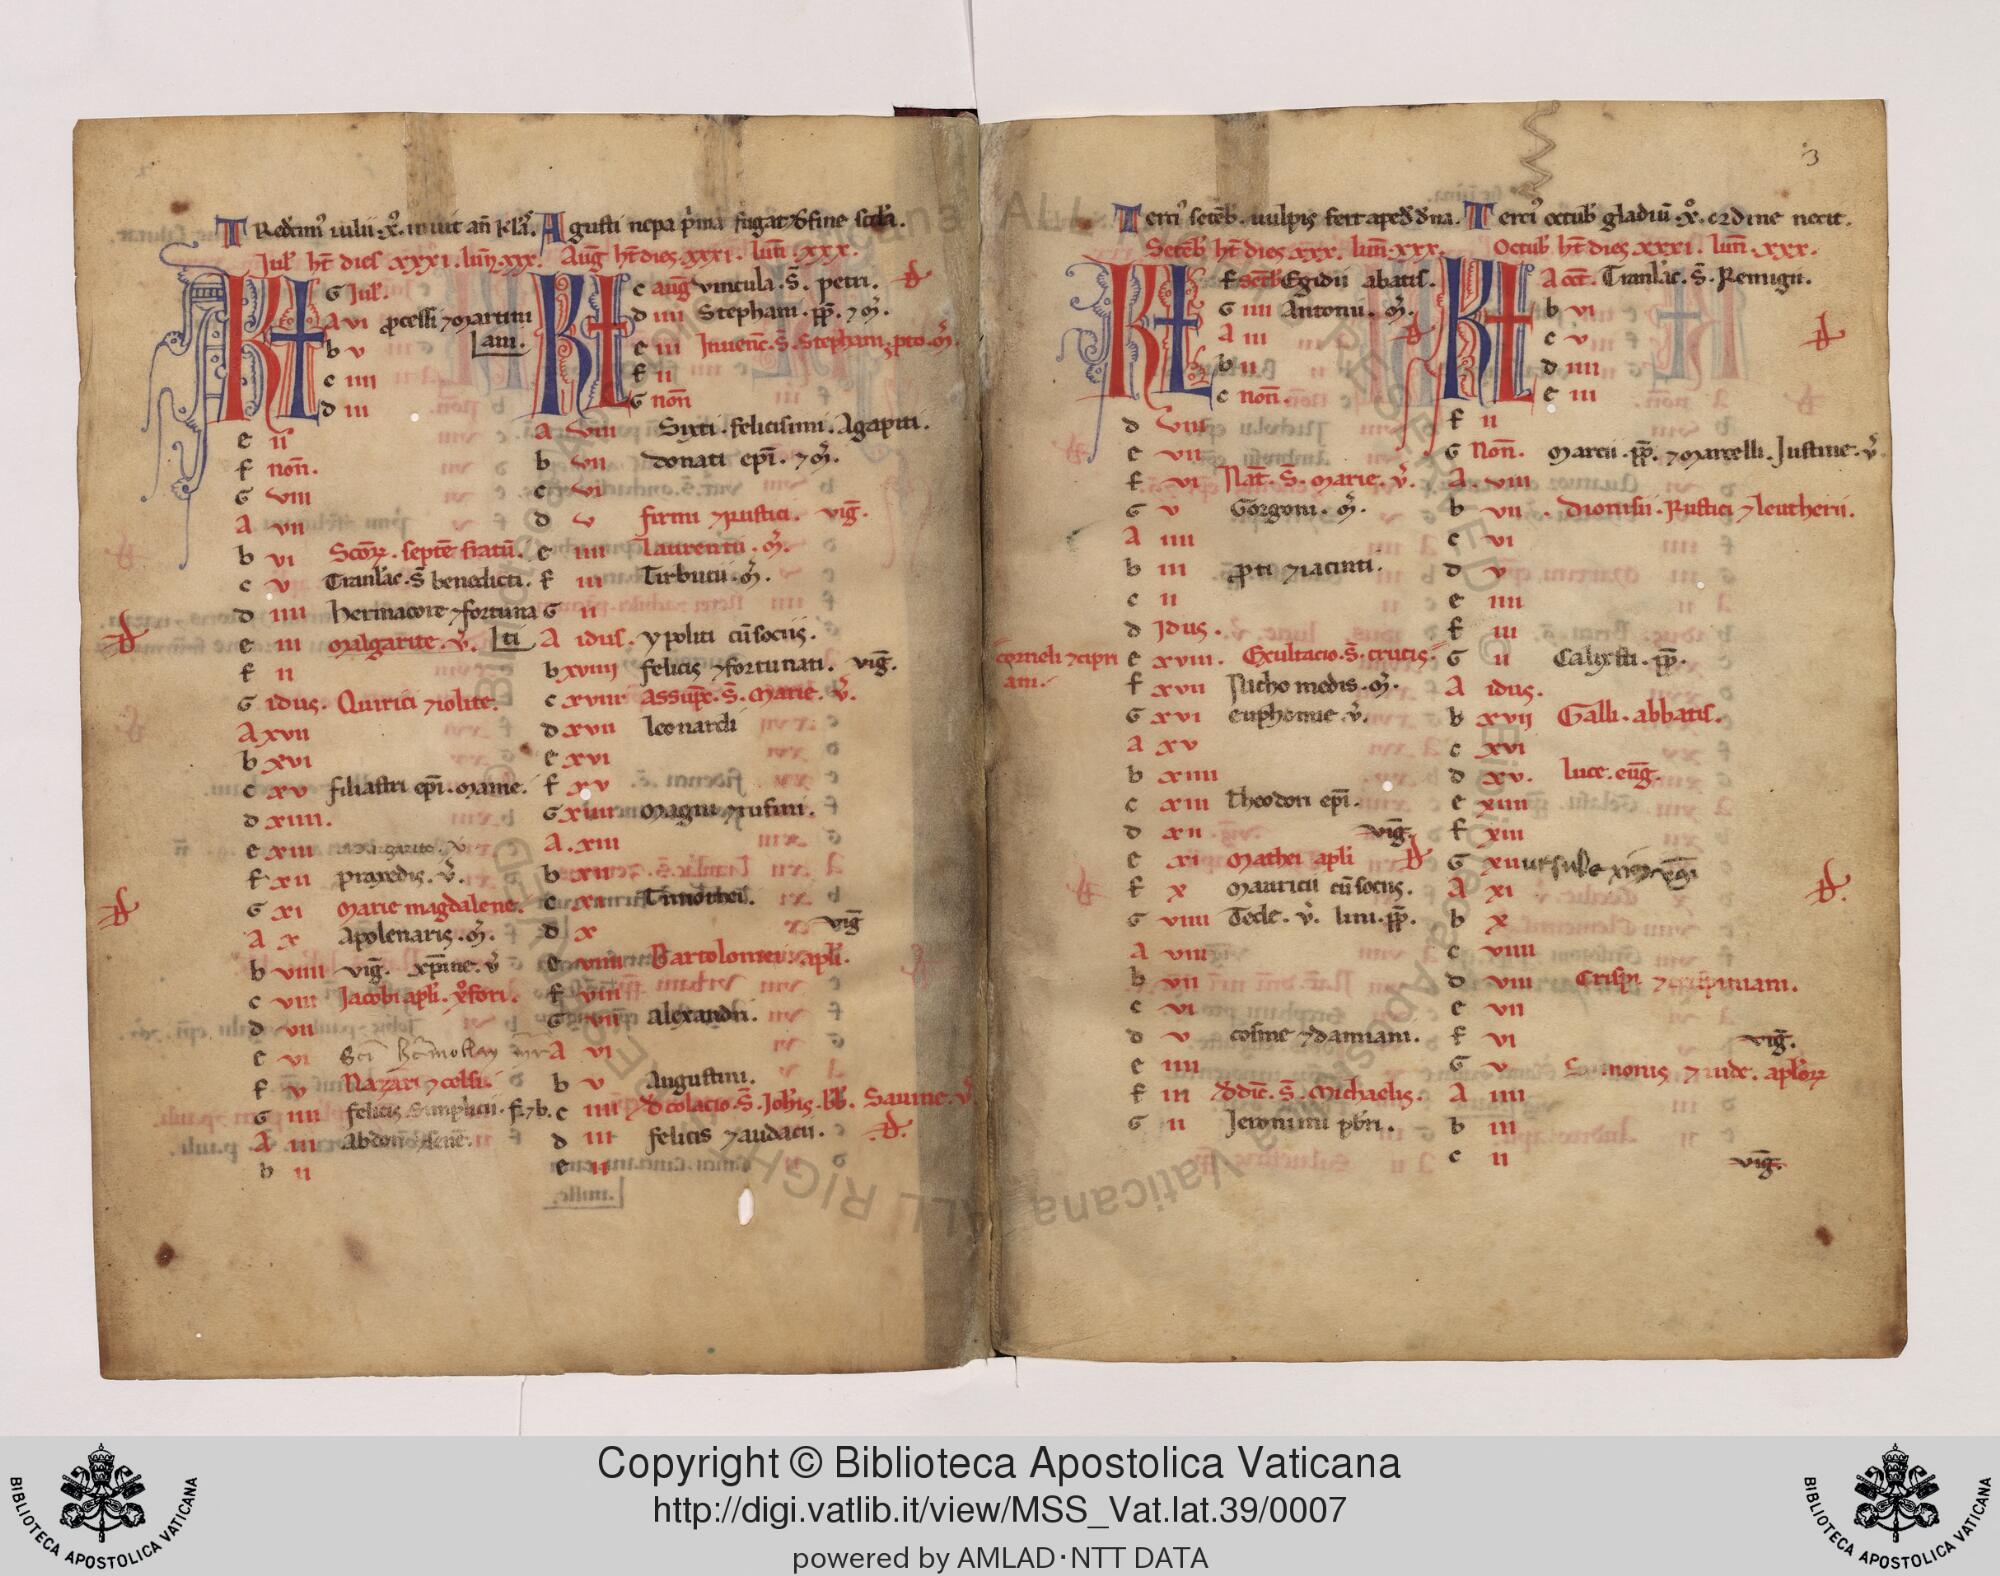 TRedcim' iulii .x°. innuit añ kl'as.
Jul' ħt dies xxxi. luñ xxx.
KL G Jul'.
A vi p̱cessi ⁊ martini
ani.
b v
c iiii
d iii
e ii
f noñ.
G viii
A vii
b vi Scõꝝ. septē fratrū.
c v Translac̄. S̄ benedicti.
d iiii hermacore ⁊ fortuna
e iii malgarite. v̄. ti
f ii
G idus. Quirici ⁊ iolite.
A xvii
b xvi
c xv filiastri ep̄i. Marine.
d xiiii.
e xiii margarite. v̄
f xii praxedis. v̄.
G xi Marie magdalene.
A x Apolenaris. m̄.
b viiii viḡ. xp̄ine. v̄
c viii Jacobi apl'i. xp̄ofori.
d vii
e vi
f v Nazari ⁊ celsi.
G iiii felicis Simplicii. f. ⁊ b.
A iii abdon ⁊ senē.
b ii
Agusti nepa p'ma fugat de fine scd'a.
Aug̃ ħt dies xxxi. luñ. xxx.
KL c aug̃ vincula. S̄. petri.
d iiii Stephani. p̄p̄. ⁊ m̄.
e iii Inuenc̄. S̄. Stephani. pto. m̄.
f ii
G noñ
A viii Sixti. felicissimi. Agapiti.
b vii donati ep̄i. ⁊ m̄.
c vi
d v firmi ⁊ rustici. viḡ.
e iiii laurentii. m̄.
f iii Tirbucii. m̄.
G ii
A idus. ypoliti cū sociis.
b xviiii felicis ⁊ fortunati. viḡ.
c xviii assūpc̄. S̄. Marie. v̄.
d xvii leonardi
e xvi
f xv
G xiiii magni ⁊ rufini.
A. xiii
b xii
c xi Timothei.
d x viḡ
e viiii Bartolomei. apl'i.
f viii
G vii alexandri.
A vi
b v Augustini.
c iiii d̄colacio. S̄. Joh'is. bb̄. Sauine. v̄.
d iii felicis ⁊ audacti.
e ii
3
Terci' setēb'. uulpis ferit a pede d'na.
Setēb' ħt dies xxx. luñ. xxx.
KL f setēb' Egidii abatis.
G iiii Antonii. m̄.
A iii
b ii
c noñ.
d viii
e vii
f vi Nat̄. S̄. Marie. v̄.
G v Gorgoni. m̄.
A iiii
b iii p̱ti ⁊ iacinti.
c ii
d Idus.
corneli ⁊ cipri e xviii. Exultacio. S̄. crucis.
ani.
f xvii Nicho medis. m̄.
G xvi euphemie v̄.
A xv
b xiiii
c xiii theodori ep̄i.
d xii viḡ.
e xi Mathei apl'i
f x Mauricii cū sociis.
G viiii Tecle. v̄. lini. p̄p̄.
A viii
b vii
c vi
d v cosme ⁊ damiani.
e iiii
f iii d̄dic̄. S̄. Michaelis.
G ii Jeronimi pb'ri.
Terci' octub' gladiū .x°. ordine nectit.
Octub' ħt dies xxxi. luñ. xxx.
KL A oct̄. Translac̄. S̄. Remigii.
b vi
c v
d iiii
e iii
f ii
G Noñ. Marci. p̄p̄. ⁊ Marcelli. Justine. v̄.
A. viii
b vii. Dionisii. Rustici ⁊ leutherii.
c vi
d v
e iiii
f iii
G ii Calixti. p̄p̄.
A idus.
b xvii Galli. abbatis.
c xvi
d xv. luce. eu̅g.
e xiiii
f xiii
G xii ursule xi m̄ v̄g
A xi
b x
c viiii
d viii Crispi ⁊ crispiniani.
e vii
f vi viḡ.
G v Simonis ⁊ iude. apl'oꝝ
A iiii
b iii
c ii viḡ.
Copyright © Biblioteca Apostolica Vaticana
http://digi.vatlib.it/view/MSS_Vat.lat.39/0007
powered by AMLAD·NTT DATA
BIBLIOTECA APOSTOLICA VATICANA
BIBLIOTECA APOSTOLICA VATICANA